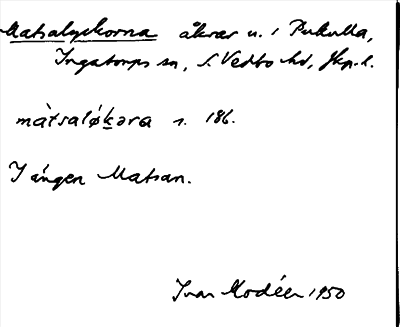 Matsalyckorna åkrar u. i Pukulla,
Ingatorps sn, S. Vedbo hd, Jkp. l.
màtsaløkəra s. 186.
I ängen Matsan.
Ivar Modéer 1950